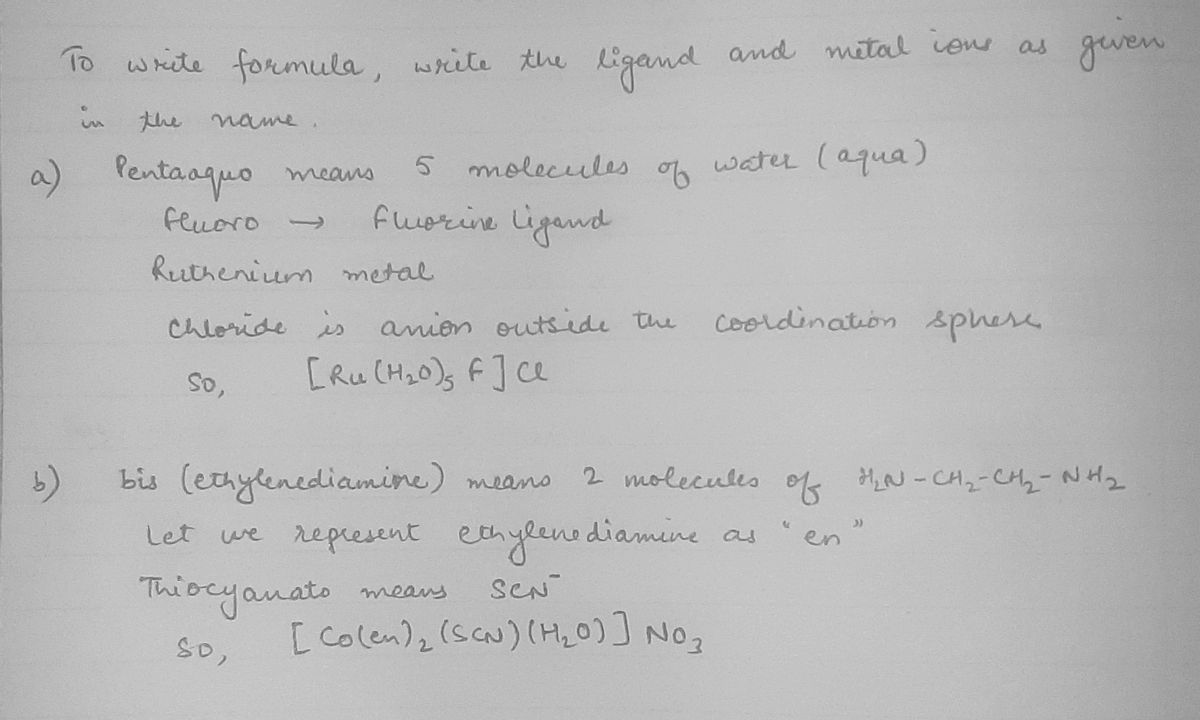 To write formula, write the ligand and metal ions as given
in the name.
a) Pentaaquo means 5 molecules of water (aqua)
fluoro → fluorine ligand
Ruthenium metal
Chloride is anion outside the coordination sphere
So, [Ru(H₂O)₅ F] Cl
b) bis (ethylenediamine) means 2 molecules of H₂N-CH₂-CH₂-NH₂
Let we represent ethylenediamine as "en"
Thiocyanato means SCN⁻
So, [Co(en)₂ (SCN)(H₂O)] NO₃